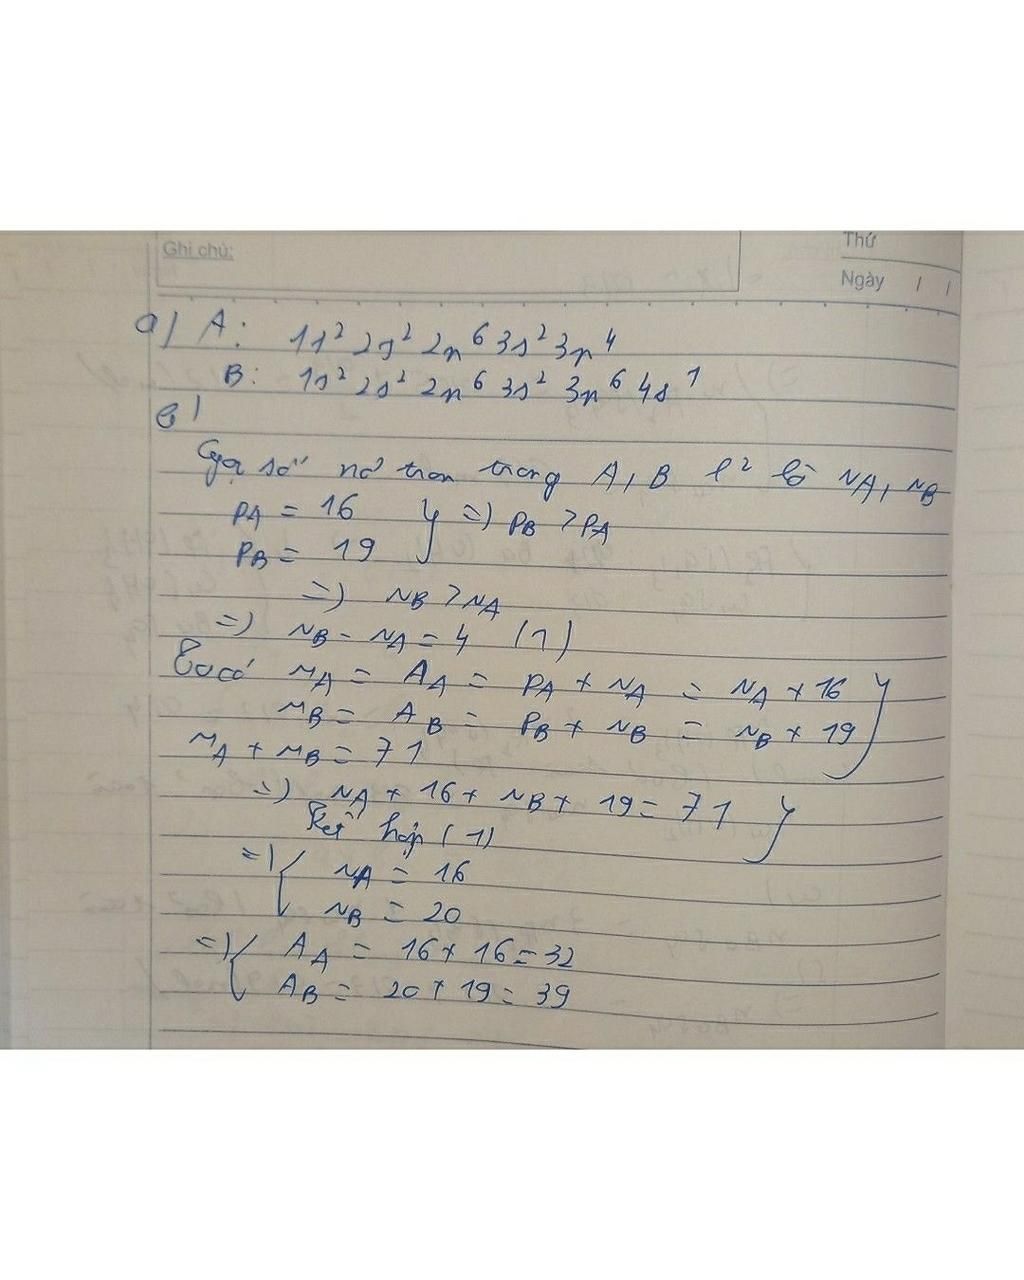 Ghi chú:
Thứ
Ngày / /
a) A: 1s² 2s² 2p⁶ 3s² 3p⁴
B: 1s² 2s² 2p⁶ 3s² 3p⁶ 4s¹
b)
Gọi số nơ tron trong A, B l² là NA, NB
PA = 16 } => PB > PA
PB = 19
=> NB > NA
=> NB - NA = 4 (1)
Ta có MA = AA = PA + NA = NA + 16 }
MB = AB = PB + NB = NB + 19
MA + MB = 71
=> NA + 16 + NB + 19 = 71 }
Kết hợp (1)
=> { NA = 16
NB = 20
=> { AA = 16 + 16 = 32
AB = 20 + 19 = 39